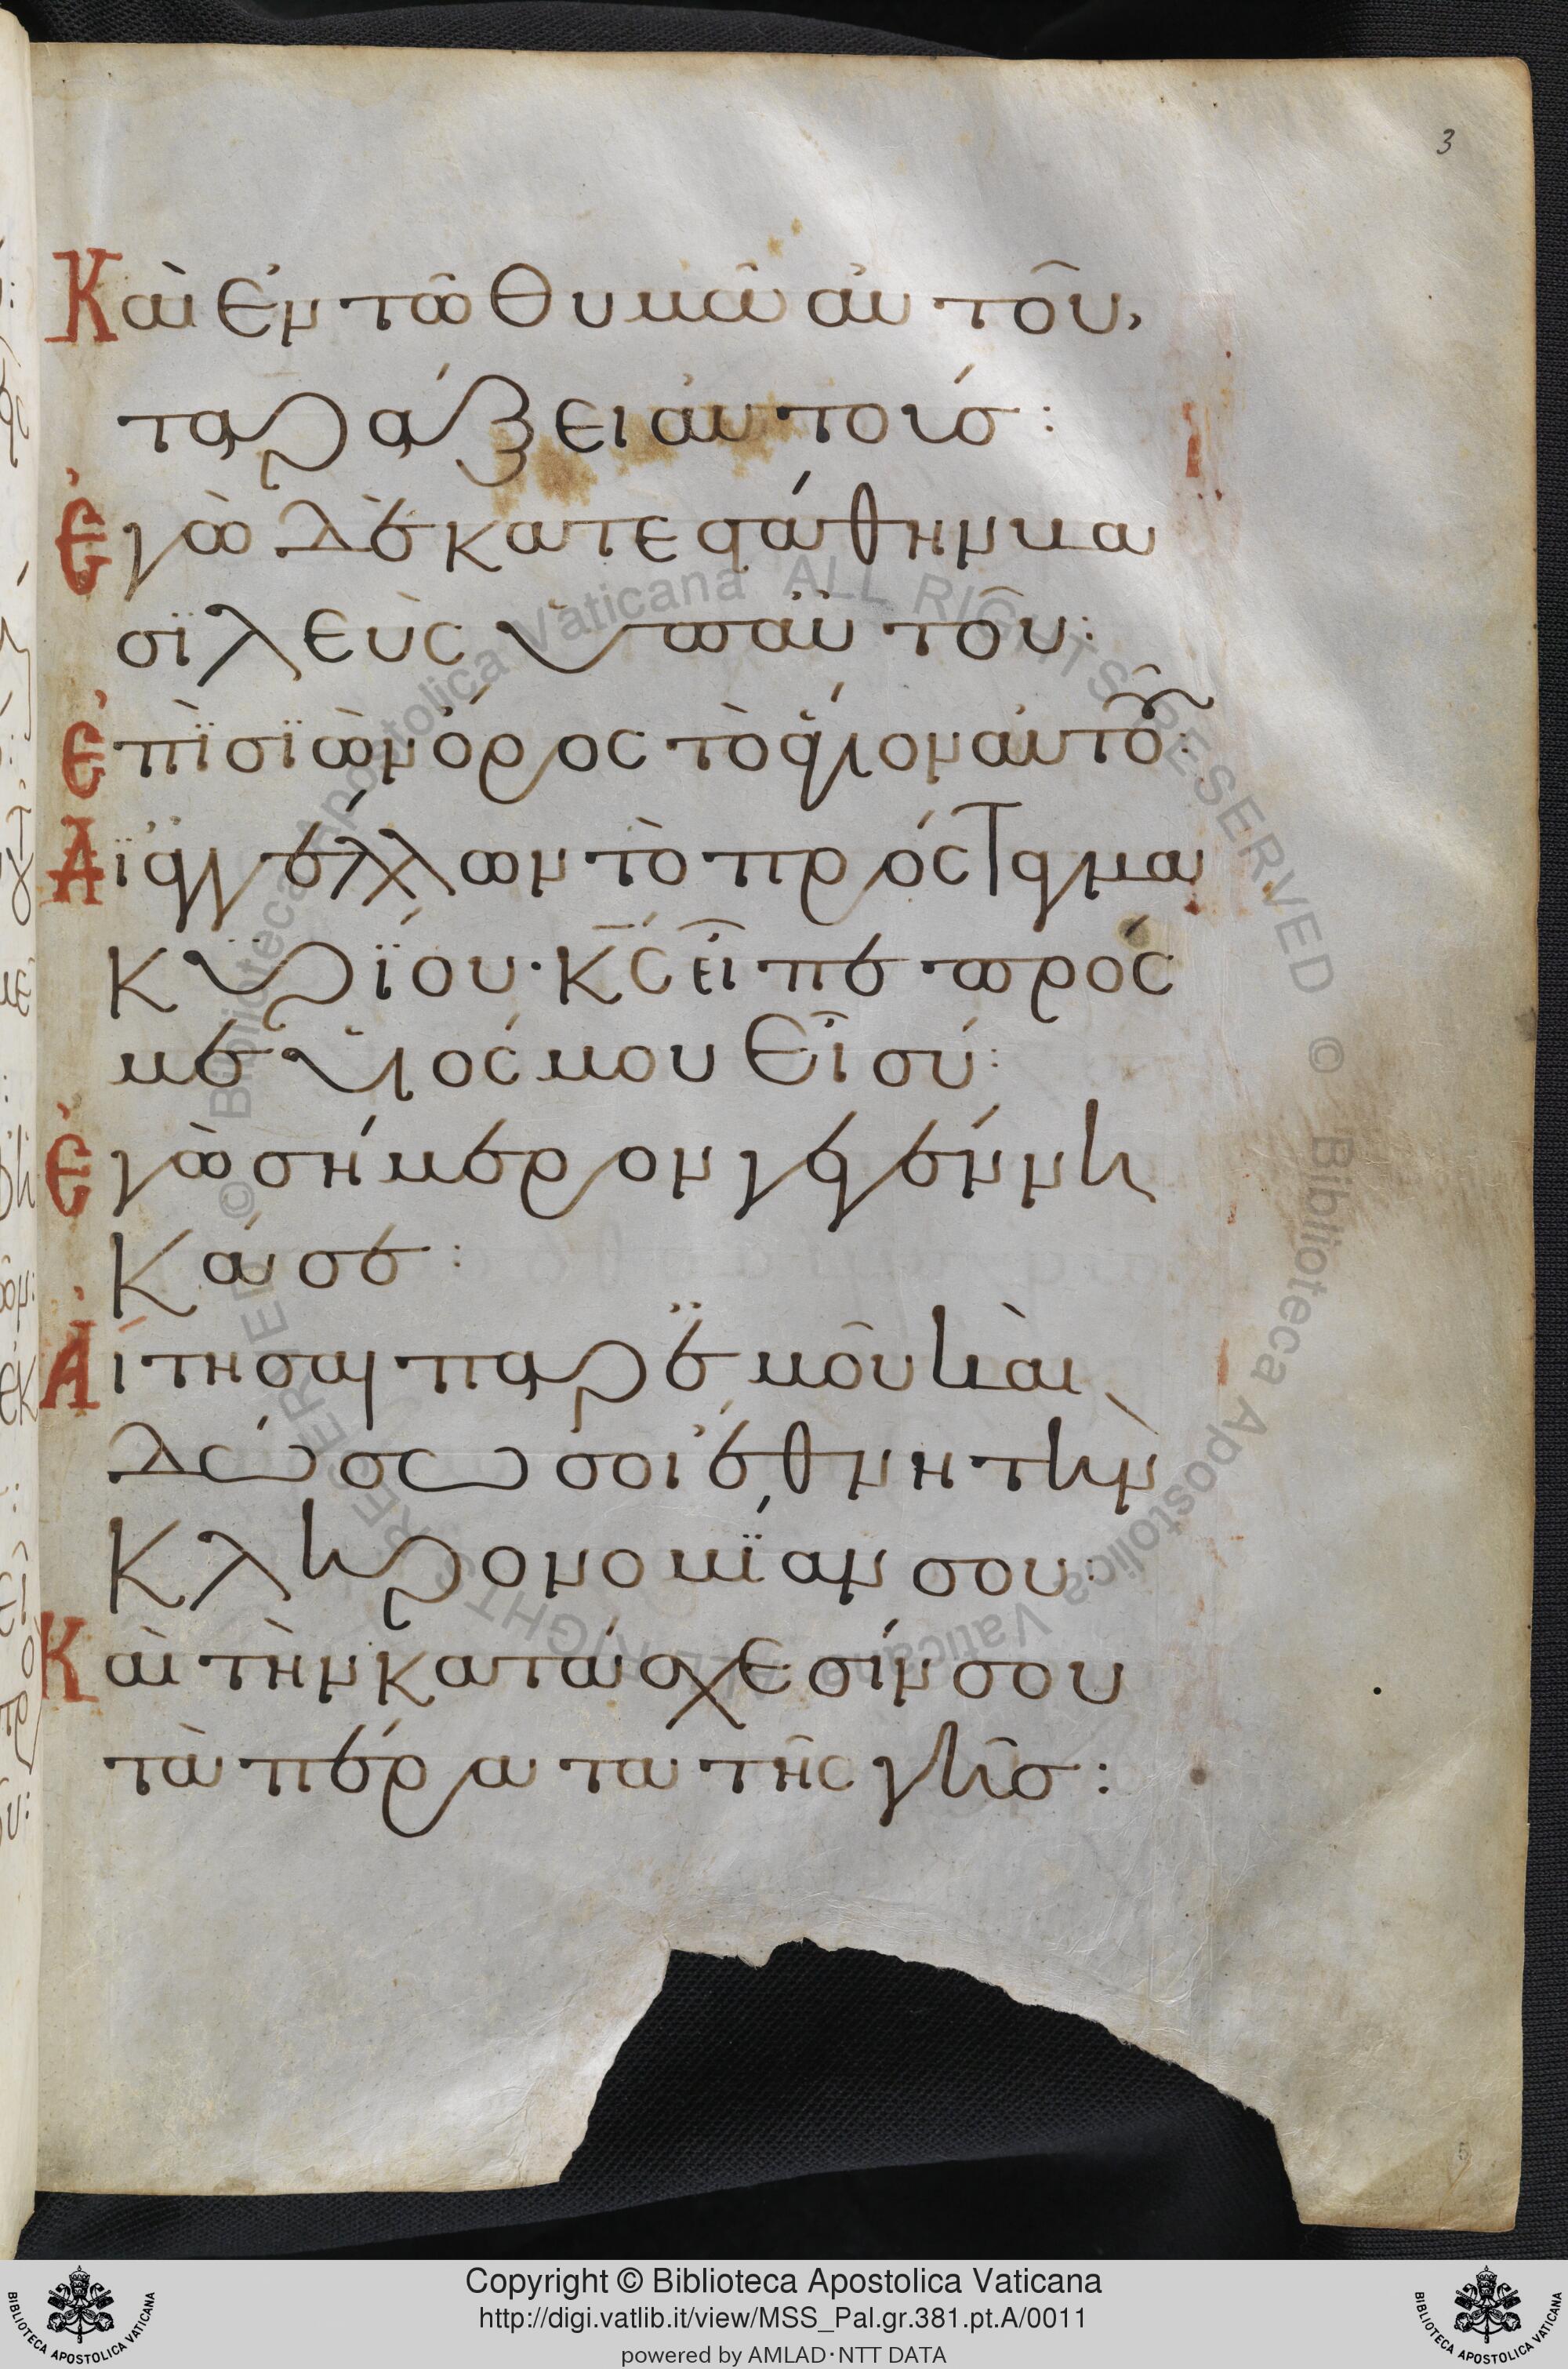 3
Καὶ ἐν τῶ θυμῶ αὐτοῦ,
ταράξει αὐτούσ:
Ἐγὼ δὲ κατεστάθην βα
σϊλεὺς ὑπ αὐτοῦ:
Ἐπὶ σϊὼν ὄρος τὸ ἅγιον αὐτοῦ:
Δϊαγγέλλων τὸ πρόσταγμα
κυρΐου· κ̅ς̅ εἶπε πρός
με υἱός μου εἶ σύ:
Ἐγὼ σήμερον γεγέννη
κά σε:
Αἴτησαι παρ ἐμοῦ καὶ
δώσω σοι ἔθνη τὴν
κληρονομΐαν σου:
Καὶ τὴν κατάσχεσίν σου
τὰ πέρατα τῆς γῆσ:
5
© Biblioteca Apostolica Vaticana ALL RIGHTS RESERVED © Biblioteca Apostolica Vaticana ALL RIGHTS RESERVED
Copyright © Biblioteca Apostolica Vaticana
http://digi.vatlib.it/view/MSS_Pal.gr.381.pt.A/0011
powered by AMLAD·NTT DATA
BIBLIOTECA APOSTOLICA VATICANA
BIBLIOTECA APOSTOLICA VATICANA